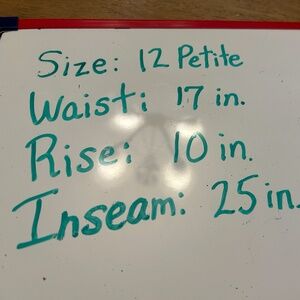 Size: 12 Petite
Waist: 17 in.
Rise: 10 in.
Inseam: 25 in.